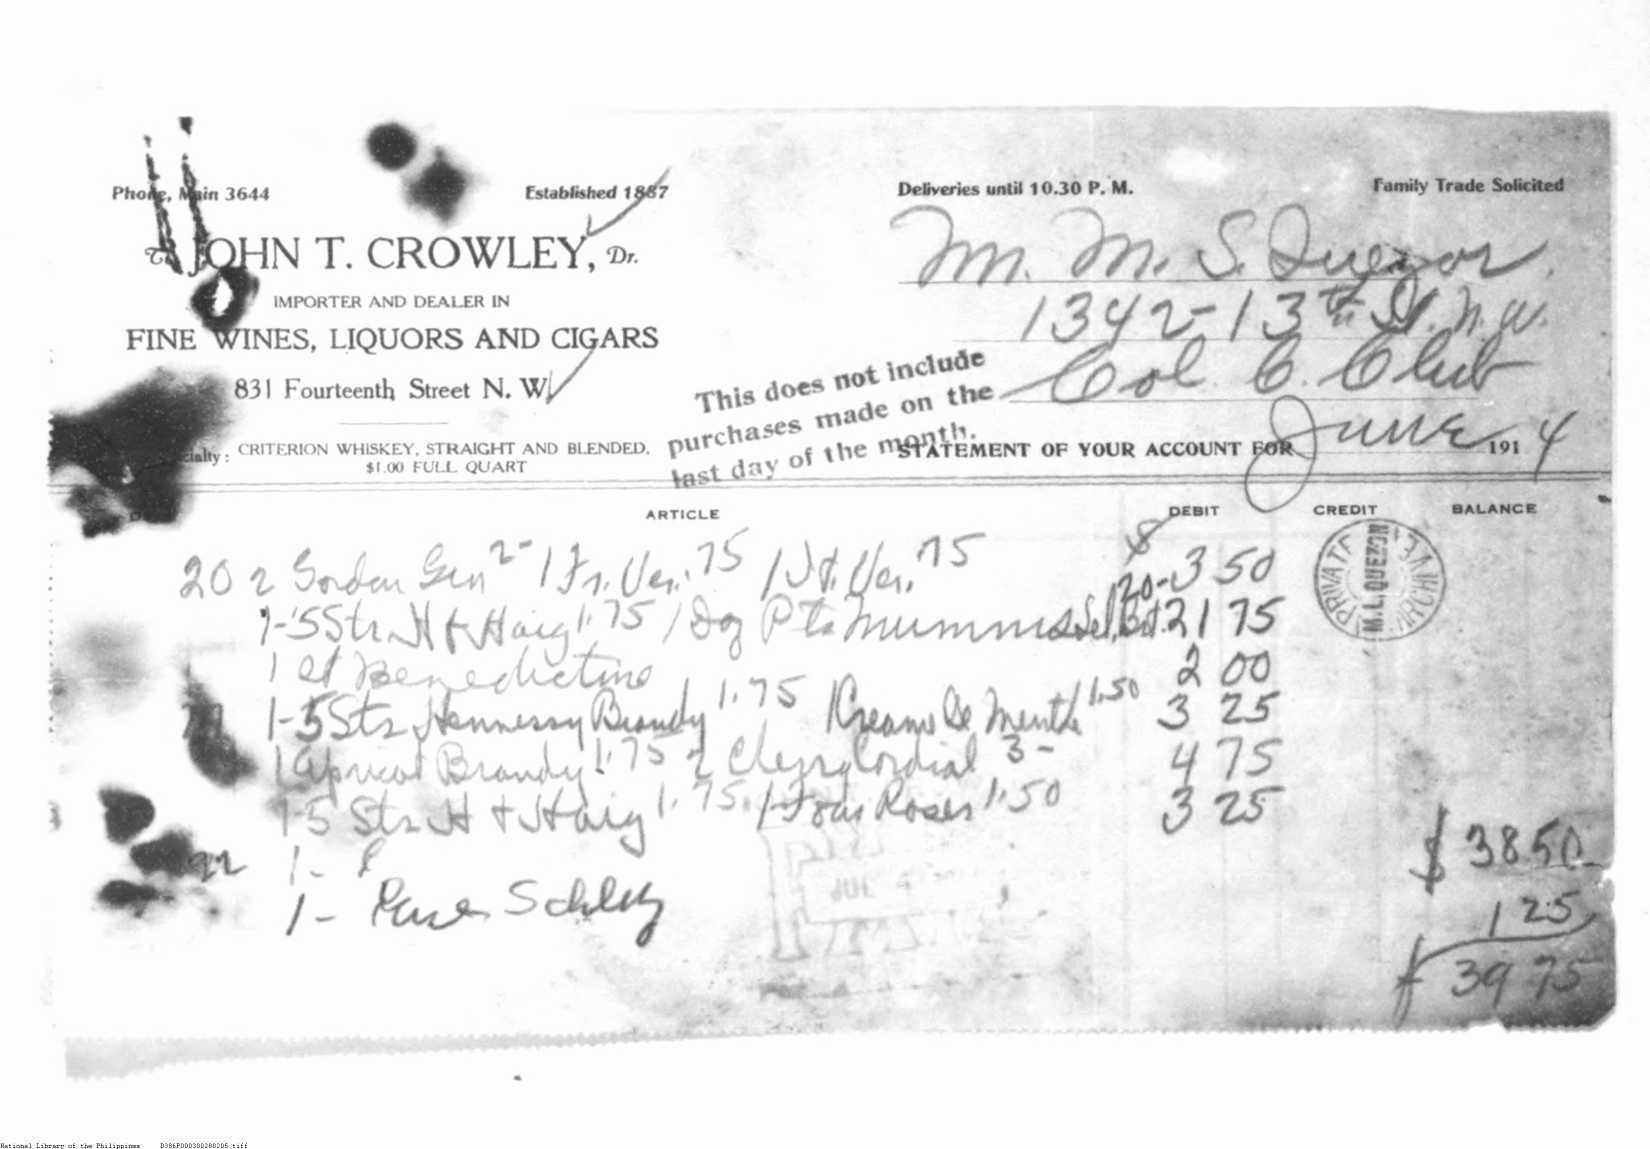 Phone, Main 3644
Established 1887
Deliveries until 10.30 P. M.
Family Trade Solicited
JOHN T. CROWLEY, Dr.
IMPORTER AND DEALER IN
FINE WINES, LIQUORS AND CIGARS
831 Fourteenth Street N. W.
CRITERION WHISKEY, STRAIGHT AND BLENDED,
$1.00 FULL QUART
M. S. Quezon
1342-13th St. N.W.
Col. C. Club
This does not include
purchases made on the
last day of the month.
STATEMENT OF YOUR ACCOUNT FOR June 1914
ARTICLE DEBIT CREDIT BALANCE
20 2 Gordon Gin 2- 1 Fr. Ver. .75 1 It. Ver. .75 $ 3 50
1-5 Str H & Haig 1.75 1 Doz Pts Mumms Sel. Brt. 20- 21 75
1 Benedictine 2 00
1-5 Str Hennessy Brandy 1.75 1 Creame De Menthe 1.50 3 25
1 Apricot Brandy 1.75 2 Cherry Cordial 3- 4 75
1-5 Str H & Haig 1.75 1 Four Roses 1.50 3 25
PRIVATE ARCHIVE
M. L. QUEZON
$ 38.50
1 25
$ 39 75
22 1-
1-
JUL
National Library of the Philippines D386P000300280205.tiff